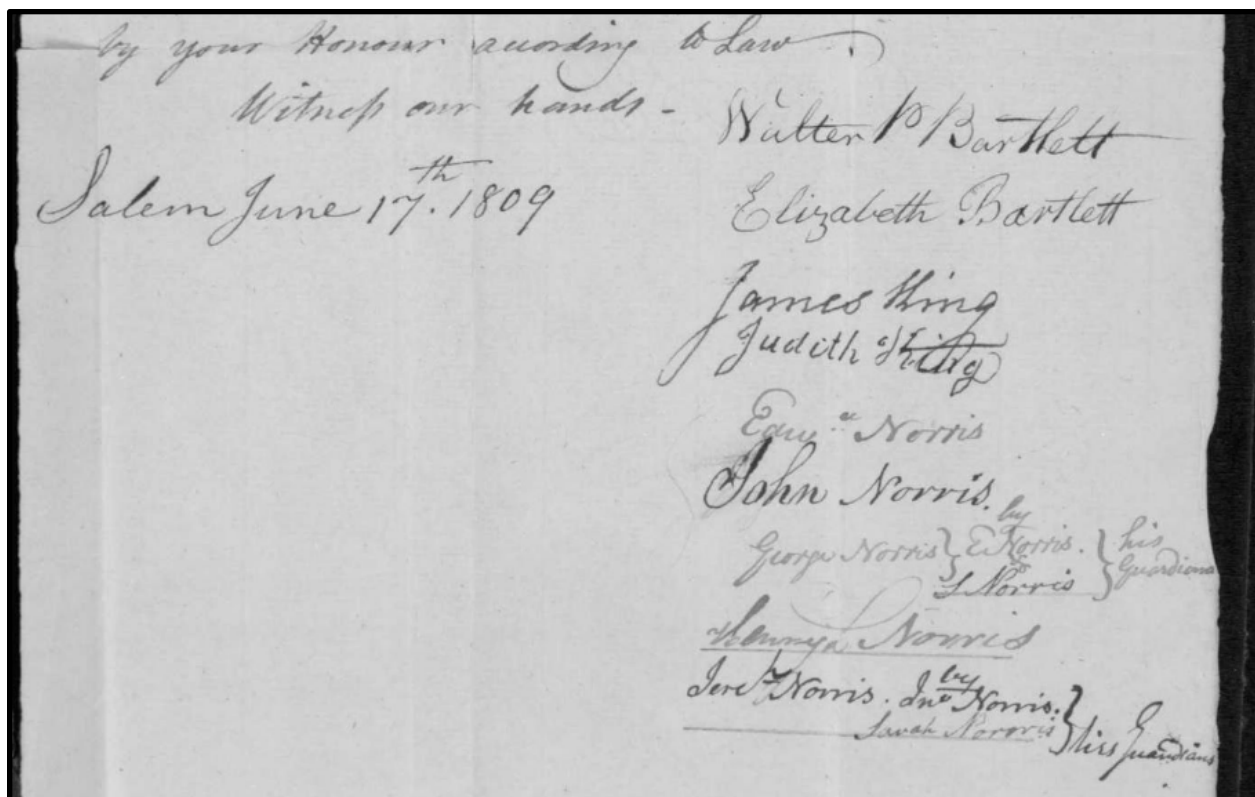 by your Honour acording to Law.
Witness our hands -
Salem June 17th. 1809
Walter P Bartlett
Elizabeth Bartlett
James King
Judith King
Edwd Norris
John Norris.
by
George Norris } E Norris. } his
& Guardians
S Norris
Norris
by
Jerey Norris. Jno Norris. }
Sarah Norris } hiss Guardians